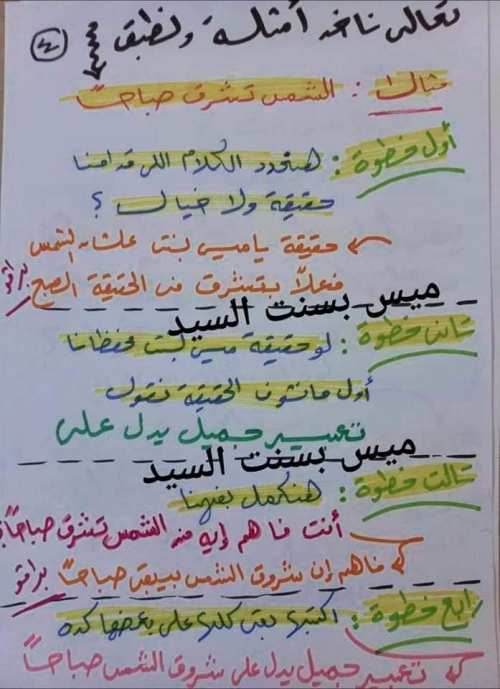 تعالى ناخد أمثلة ونطبق
٤
مثال : الشمس تشرق صباحًا
أول خطوة : هنحدد الكلام اللى قدامنا
حقيقة ولا خيال ؟
حقيقة يا ميس بسنت علشان الشمس
فعلًا بتشرق فى الحقيقة الصبح برافو
ميس بسنت السيد
تانى خطوة : لو حقيقة ميس بسنت محفظانا
أول مانشوف الحقيقة نقول
تعبير جميل يدل على
ميس بسنت السيد
تالت خطوة : هنكمل بفهمنا
أنت فاهم إيه من الشمس تشرق صباحًا؟
فاهم إن شروق الشمس بيبقى صباحًا برافو
رابع خطوة : اكتبها بقى كلها على بعضها كده
تعبير جميل يدل على شروق الشمس صباحًا